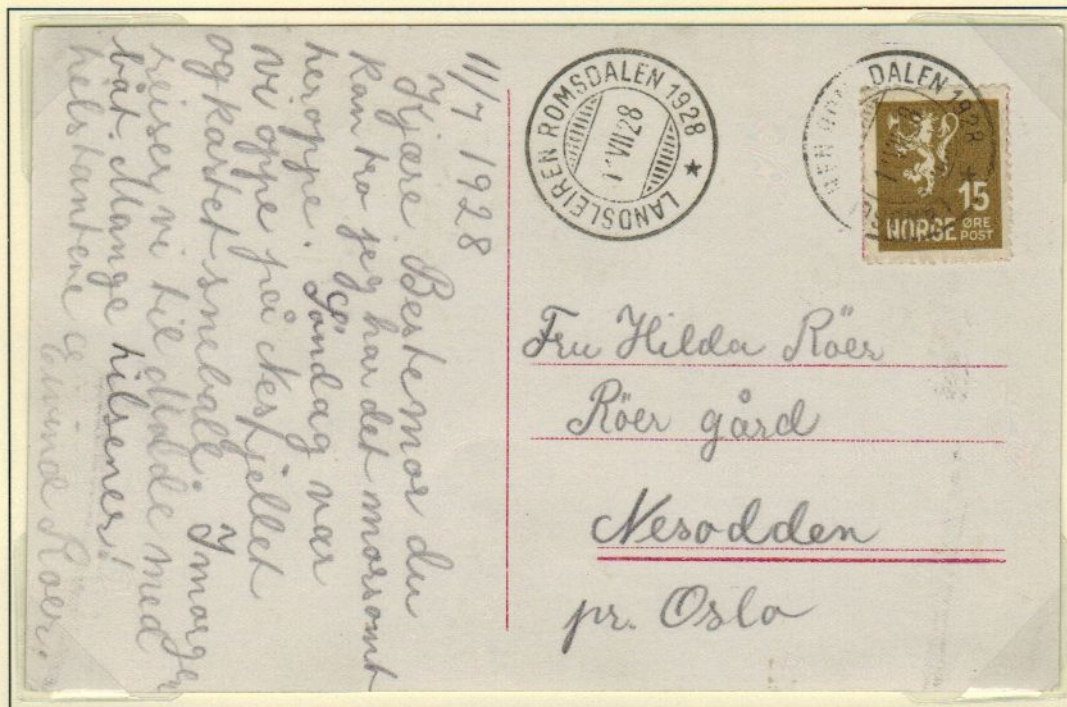 11/7 1928
Kjære Bestemor du
kan tro jeg har det morsomt
heroppe. Søndag var
vi oppe på Nesfjellet
og kastet sneball. I morgen
reiser vi til Molde med
båt. Mange hilsener!
hels tantene
Eivind Röer.
LANDSLEIREN ROMSDALEN 1928
VII 28
DALEN 1928
15
NORGE ØRE
POST
Fru Hilda Röer
Röer gård
Nesodden
pr. Oslo